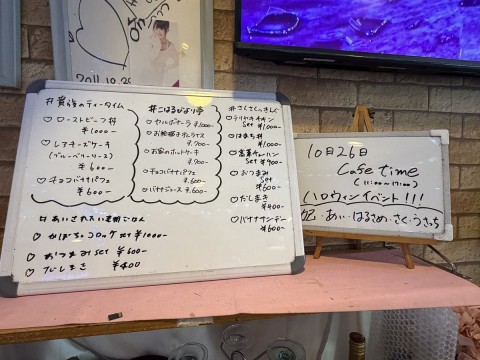 2011.10.29
# 貴族のティータイム
♡ ローストビーフ丼
¥1000ー
♡ レアチーズケーキ
(ブルーベリーソース)
¥600ー
♡ チョコバナナパフェ
¥600ー
#こはるびより亭
♡ カルボナーラ ¥1000ー
♡ お絵描きオムライス
¥900ー
♡ お家のホットケーキ
¥700ー
♡ チョコバナナパフェ
¥600ー
♡ バナナジュース ¥600ー
#さくさくっきんぐ
♡ テリヤキチキン
Set ¥1000ー
♡ はまち丼
¥1000ー
♡ 高菜チャーハン
Set ¥900ー
♡ おつまみ
Set
¥600ー
♡ だしまき
¥400ー
♡ バナナサンデー
¥600ー
# あいされたい
ごはん
♡ かぼちゃコロッケset ¥1000ー
♡ おつまみset ¥600ー
♡ だしまき ¥400
10月26日
Cafe time
(11:00~17:00)
ハロウィンイベント!!!
妃・あい・はるさめ・さく・うさっち